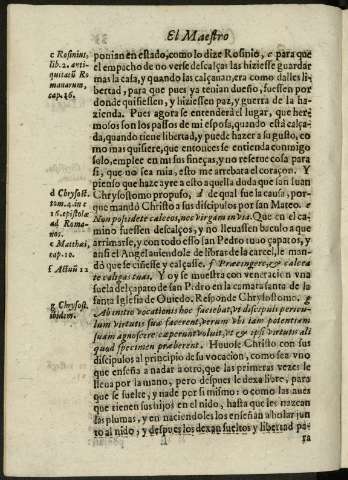 El Maestro
c Rosinius, lib. 2. anti-
quitatũ Ro
manarum,
cap. 36.
ponian en estado, como lo dize Rosinio, c para que
el empacho de no verse descalças las hiziesse guardar
mas la casa, y quando las calçauan, era como dalles li-
bertad, para que pues ya tenian dueño, fuessen por
donde quisiessen, y hiziessen paz, y guerra de la ha-
zienda. Pues agora se entenderà el lugar, que her
mosos son los passos de mi esposa, quando està calça-
da, quando tiene libertad, y puede hazer a su gusto, co
mo mas quisiere, que entonces se entienda conmigo
solo, emplee en mi sus fineças, y no reserue cosa para
si, que no sea mia, esto me arrebata el coraçon. Y
pienso que haze ayre a esto aquella duda que san Iuan
d Chrysost.
tom. 4. in c
16. epistolæ
ad Roma-
nos.
e Matthæi,
cap. 10.
f Actuũ 12
Chrysostomo propuso, d de qual fue la causa, por-
que mandò Christo a sus dicipulos por san Mateo. e
Non possidete calceos, nec virgam in via. Que en el ca-
mino fuessen descalços, y no lleuassen baculo a que
arrimarse, y con todo esso san Pedro tuuo çapatos, y
ansi el Angel auiendole de librar de la carcel, le man-
dò que se ciñesse y calçasse. f Præcingere, & calcea
te caligas tuas. Y oy se muestra con veneracion vna
suela del çapato de san Pedro en la camara santa de la
santa Iglesia de Ouiedo. Responde Chrysostomo. g
g Chrysost.
ibidem.
Ab initio vocationis hoc faciebat, vt discipuli periculum virtutis suæ facerent, verum vbi iam potentiam
suam agnoscere cæperunt voluit, vt & ipsi virtutis ali
quod specimen præberent. Huuose Christo con sus
discipulos al principio de su vocacion, como sea vno
que enseña a nadar a otro, que las primeras vezes le
lleua por la mano, pero despues le dexa libre, para
que se suelte, y nade por si mismo: o como las aues
que tienen sus hijos en el nido, hasta que les nazcan
las plumas, y en naciendoles los enseñan a bolar jun
to al nido, y despues los dexan sueltos y libertad pa-
ra